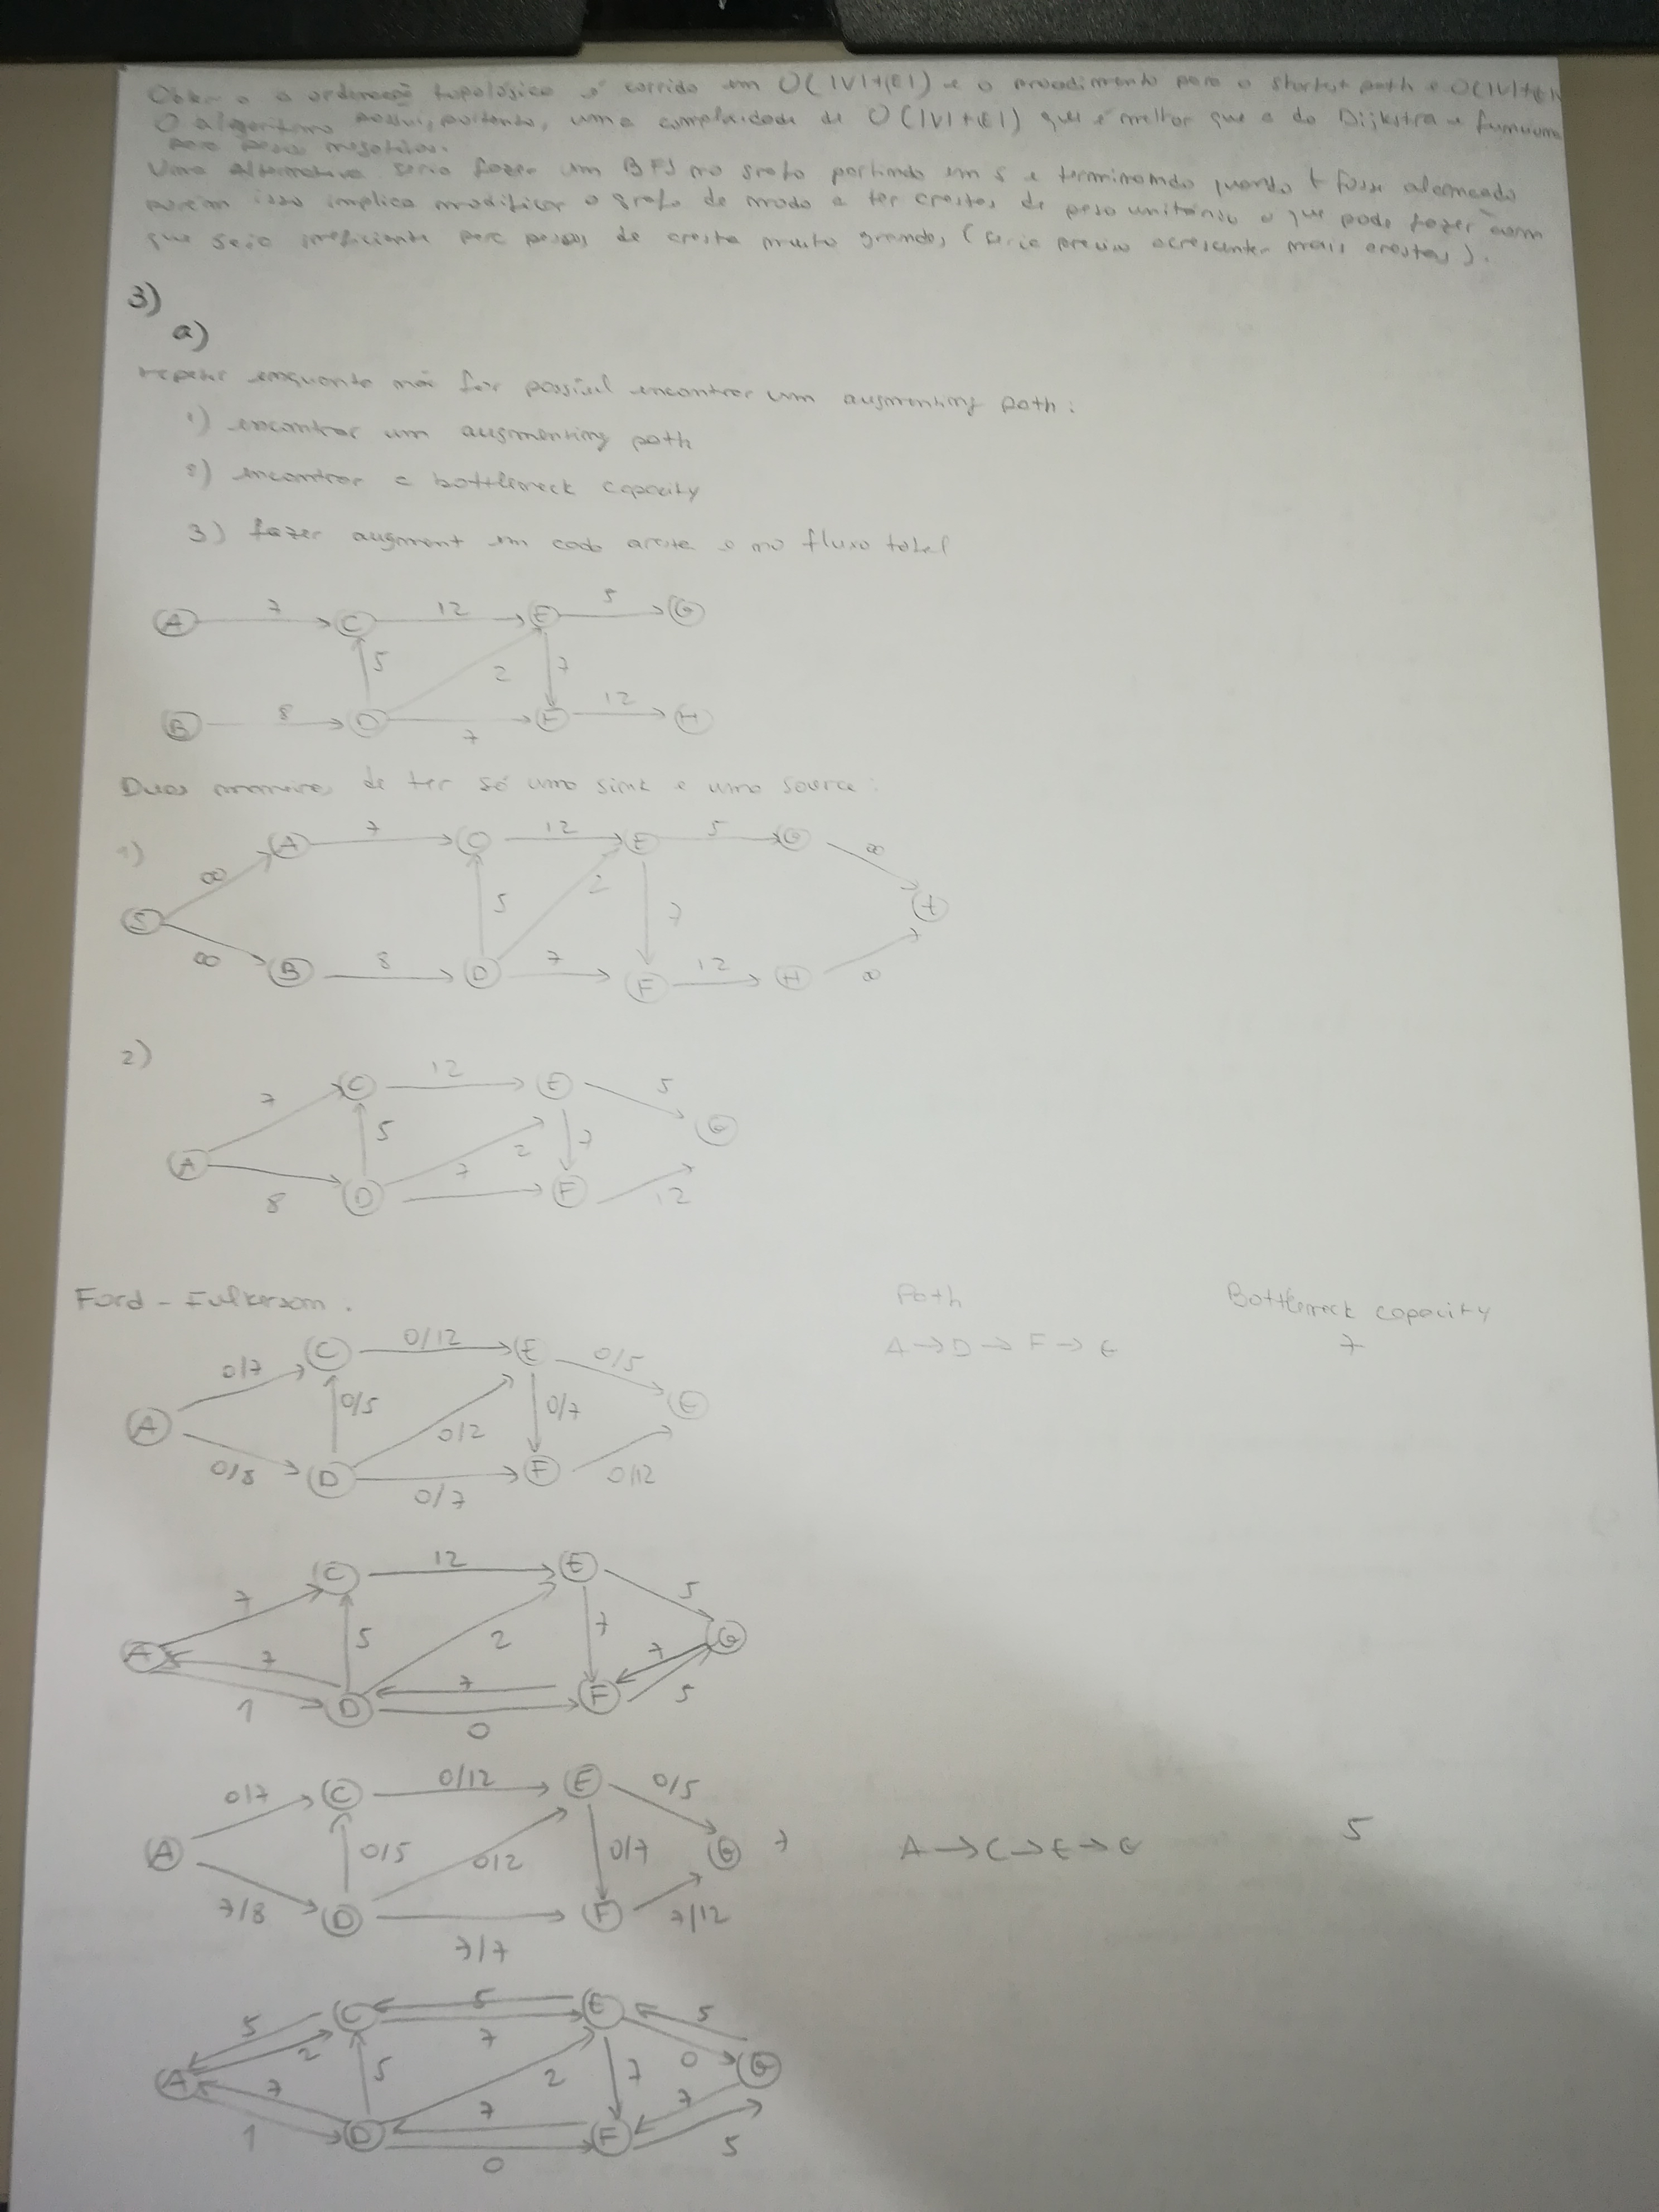 Obter a ordenação topológica é corrido em O(|V|+|E|) e o procedimento para o shortest path e O(|V|+|E|)
O algoritmo possui, portanto, uma complexidade de O(|V|+|E|) que é melhor que a do Dijkstra e funciona
para pesos negativos.
Uma alternativa seria fazer um BFS no grafo partindo em s e terminando quando t fosse alcançado
porém isso implica modificar o grafo de modo a ter arestas de peso unitário o que pode fazer com
que seja ineficiente para pesos de aresta muito grandes (seria preciso acrescentar mais arestas).
3)
a)
repetir enquanto não for possível encontrar um augmenting path:
1) encontrar um augmenting path
2) encontrar a bottleneck capacity
3) fazer augment em cada aresta e no fluxo total
A 7 C 12 E 5 G
5 2 7
B 8 D 7 F 12 H
Duas maneiras de ter só uma sink e uma source:
1)
A 7 C 12 E 5 G ∞
∞ 5 2 7
S t
∞ B 8 D 7 F 12 H ∞
2)
7 C 12 E 5
5 2 7 G
A 7
8 D F 12
Ford-Fulkerson. Path Bottleneck capacity
0/7 C 0/12 E 0/5 A → D → F → G 7
A 0/5 0/2 0/7 G
0/8 D 0/7 F 0/12
7 C 12 E 5
A 7 5 2 7 7 G
1 D 7 0 F 5
0/7 C 0/12 E 0/5
A 0/5 0/2 0/7 G 7 A → C → E → G 5
7/8 D 7/7 F 7/12
5 2 C 5 7 E 5 0
A 7 5 2 7 7 G
1 D 7 0 F 5